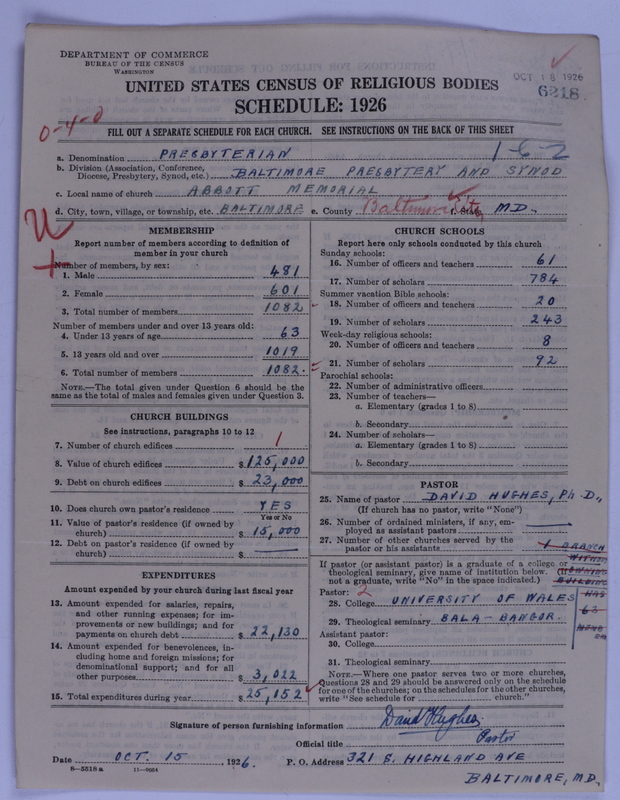 DEPARTMENT OF COMMERCE
BUREAU OF THE CENSUS
WASHINGTON
UNITED STATES CENSUS OF RELIGIOUS BODIES
SCHEDULE: 1926
OCT 18 1926
6218
0-4-0
FILL OUT A SEPARATE SCHEDULE FOR EACH CHURCH. SEE INSTRUCTIONS ON THE BACK OF THIS SHEET
1-6-2
a. Denomination PRESBYTERIAN
b. Division (Association, Conference, Diocese, Presbytery, Synod, etc.) BALTIMORE PRESBYTERY AND SYNOD
c. Local name of church ABBOTT MEMORIAL
d. City, town, village, or township, etc. BALTIMORE e. County Baltimore City f. State MD.
MEMBERSHIP
Report number of members according to definition of
member in your church
Number of members, by sex:
1. Male 481
2. Female 601
3. Total number of members 1082
Number of members under and over 13 years old:
4. Under 13 years of age 63
5. 13 years old and over 1019
6. Total number of members 1082.
NOTE.—The total given under Question 6 should be
same as the total of males and females given under Question 3.
CHURCH BUILDINGS
See instructions, paragraphs 10 to 12
7. Number of church edifices 1
8. Value of church edifices $125,000
9. Debt on church edifices $23,000
10. Does church own pastor's residence YES
Yes or No
11. Value of pastor's residence (if owned by
church) $15,000
12. Debt on pastor's residence (if owned by
church) $
EXPENDITURES
Amount expended by your church during last fiscal year
13. Amount expended for salaries, repairs,
and other running expenses; for im-
provements or new buildings; and for
payments on church debt $22,130
14. Amount expended for benevolences, in-
cluding home and foreign missions; for
denominational support; and for all
other purposes $3,022
15. Total expenditures during year $25,152
CHURCH SCHOOLS
Report here only schools conducted by this church
Sunday schools:
16. Number of officers and teachers 61
17. Number of scholars 784
Summer vacation Bible schools:
18. Number of officers and teachers 20
19. Number of scholars 243
Week-day religious schools:
20. Number of officers and teachers 8
21. Number of scholars 92
Parochial schools:
22. Number of administrative officers
23. Number of teachers—
a. Elementary (grades 1 to 8)
b. Secondary
24. Number of scholars—
a. Elementary (grades 1 to 8)
b. Secondary
PASTOR
25. Name of pastor DAVID HUGHES, Ph D.,
(If church has no pastor, write "None")
26. Number of ordained ministers, if any, em-
ployed as assistant pastors
27. Number of other churches served by the
pastor or his assistants 1 BRANCH
If pastor (or assistant pastor) is a graduate of a college or
theological seminary, give name of institution below. (If
not a graduate, write "No" in the space indicated.) BUILDING
Pastor: 2 HAS
28. College UNIVERSITY OF WALES
63
29. Theological seminary BALA-BANGOR.
Assistant pastor:
30. College
31. Theological seminary
NOTE.—Where one pastor serves two or more churches,
Questions 28 and 29 should be answered only on the schedule
for one of the churches; on the schedules for the other churches,
write "See schedule for church."
Signature of person furnishing information David Hughes
Official title Pastor
Date OCT. 15, 1926. P. O. Address 321 S. HIGHLAND AVE
BALTIMORE, MD.
8—5518 a 11—9664